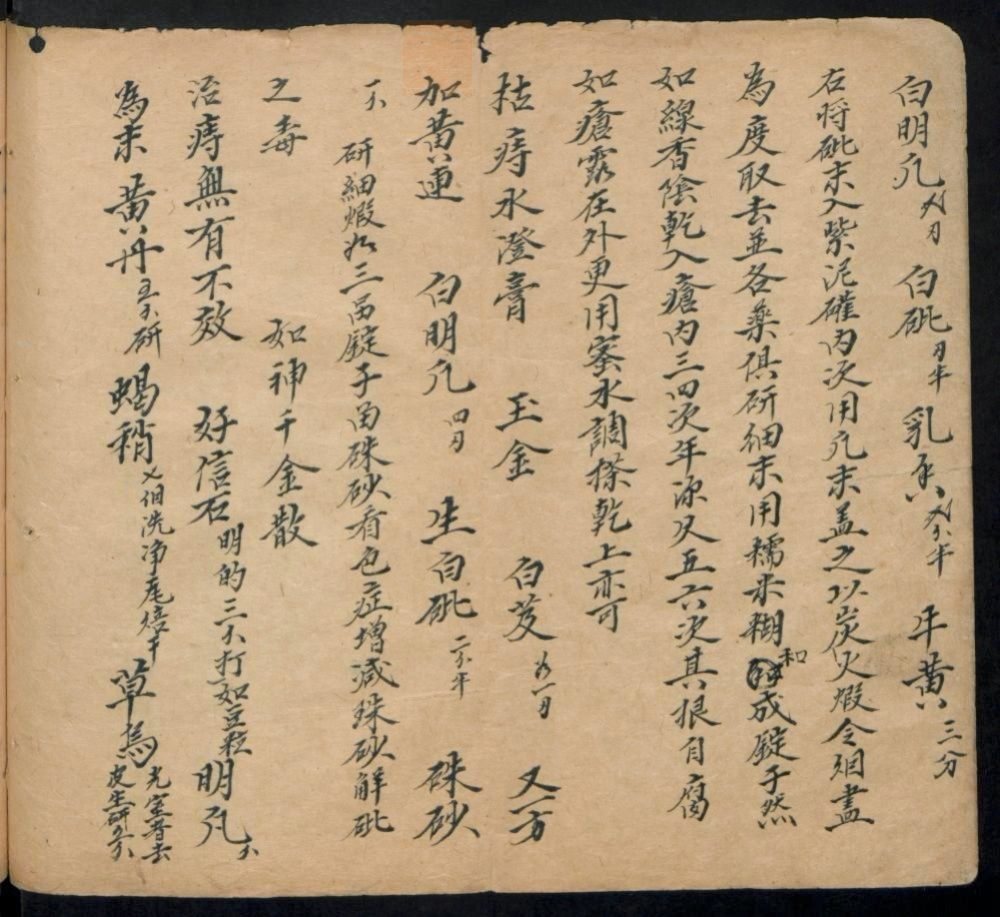 白明凡 白砒 乳香 牛黃三分
右將砒末入紫泥礶内次用凡末盖之以炭火煅令烟盡
為度取去並各藥俱研細末用糯米糊和成錠子然
如線香陰乾入瘡内三四次年深久五六次其根自腐
如瘡露在外更用蜜水調搽乾上亦可
枯痔水澄膏 玉金 白芨 為一刃 又一方
加黃連 白明凡四刃 生白砒 硃砂
研細煅 三 錠子 硃砂看色症增减珠砂解砒
之毒 如神千金散
治痔無有不效 好信石明的三 打如豆粒 明凡
為末 黃丹五 研 蝎稍 洗净尾焙干 草烏 皮生研